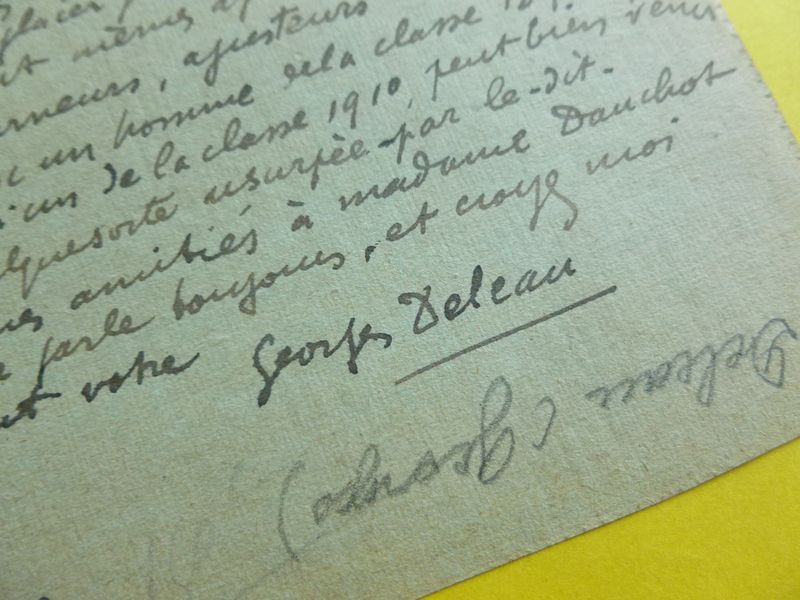 même
ajusteurs
un homme de la classe
un de la classe 1910, peut bien venir
usurpée par le-dit.
amitiés à madame Dauchot
parle toujours, et croyez moi
votre Georges Deleau
Deleau (Georges)